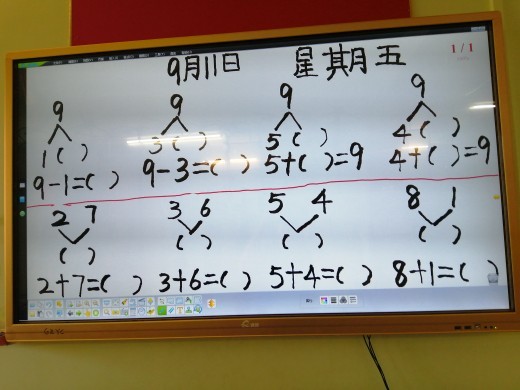 9月11日 星期五
1/1
9 9 9 9
1 ( ) 3 ( ) 5 ( ) 4 ( )
9-1=( ) 9-3=( ) 5+( )=9 4+( )=9
2 7 3 6 5 4 8 1
( ) ( ) ( ) ( )
2+7=( ) 3+6=( ) 5+4=( ) 8+1=( )